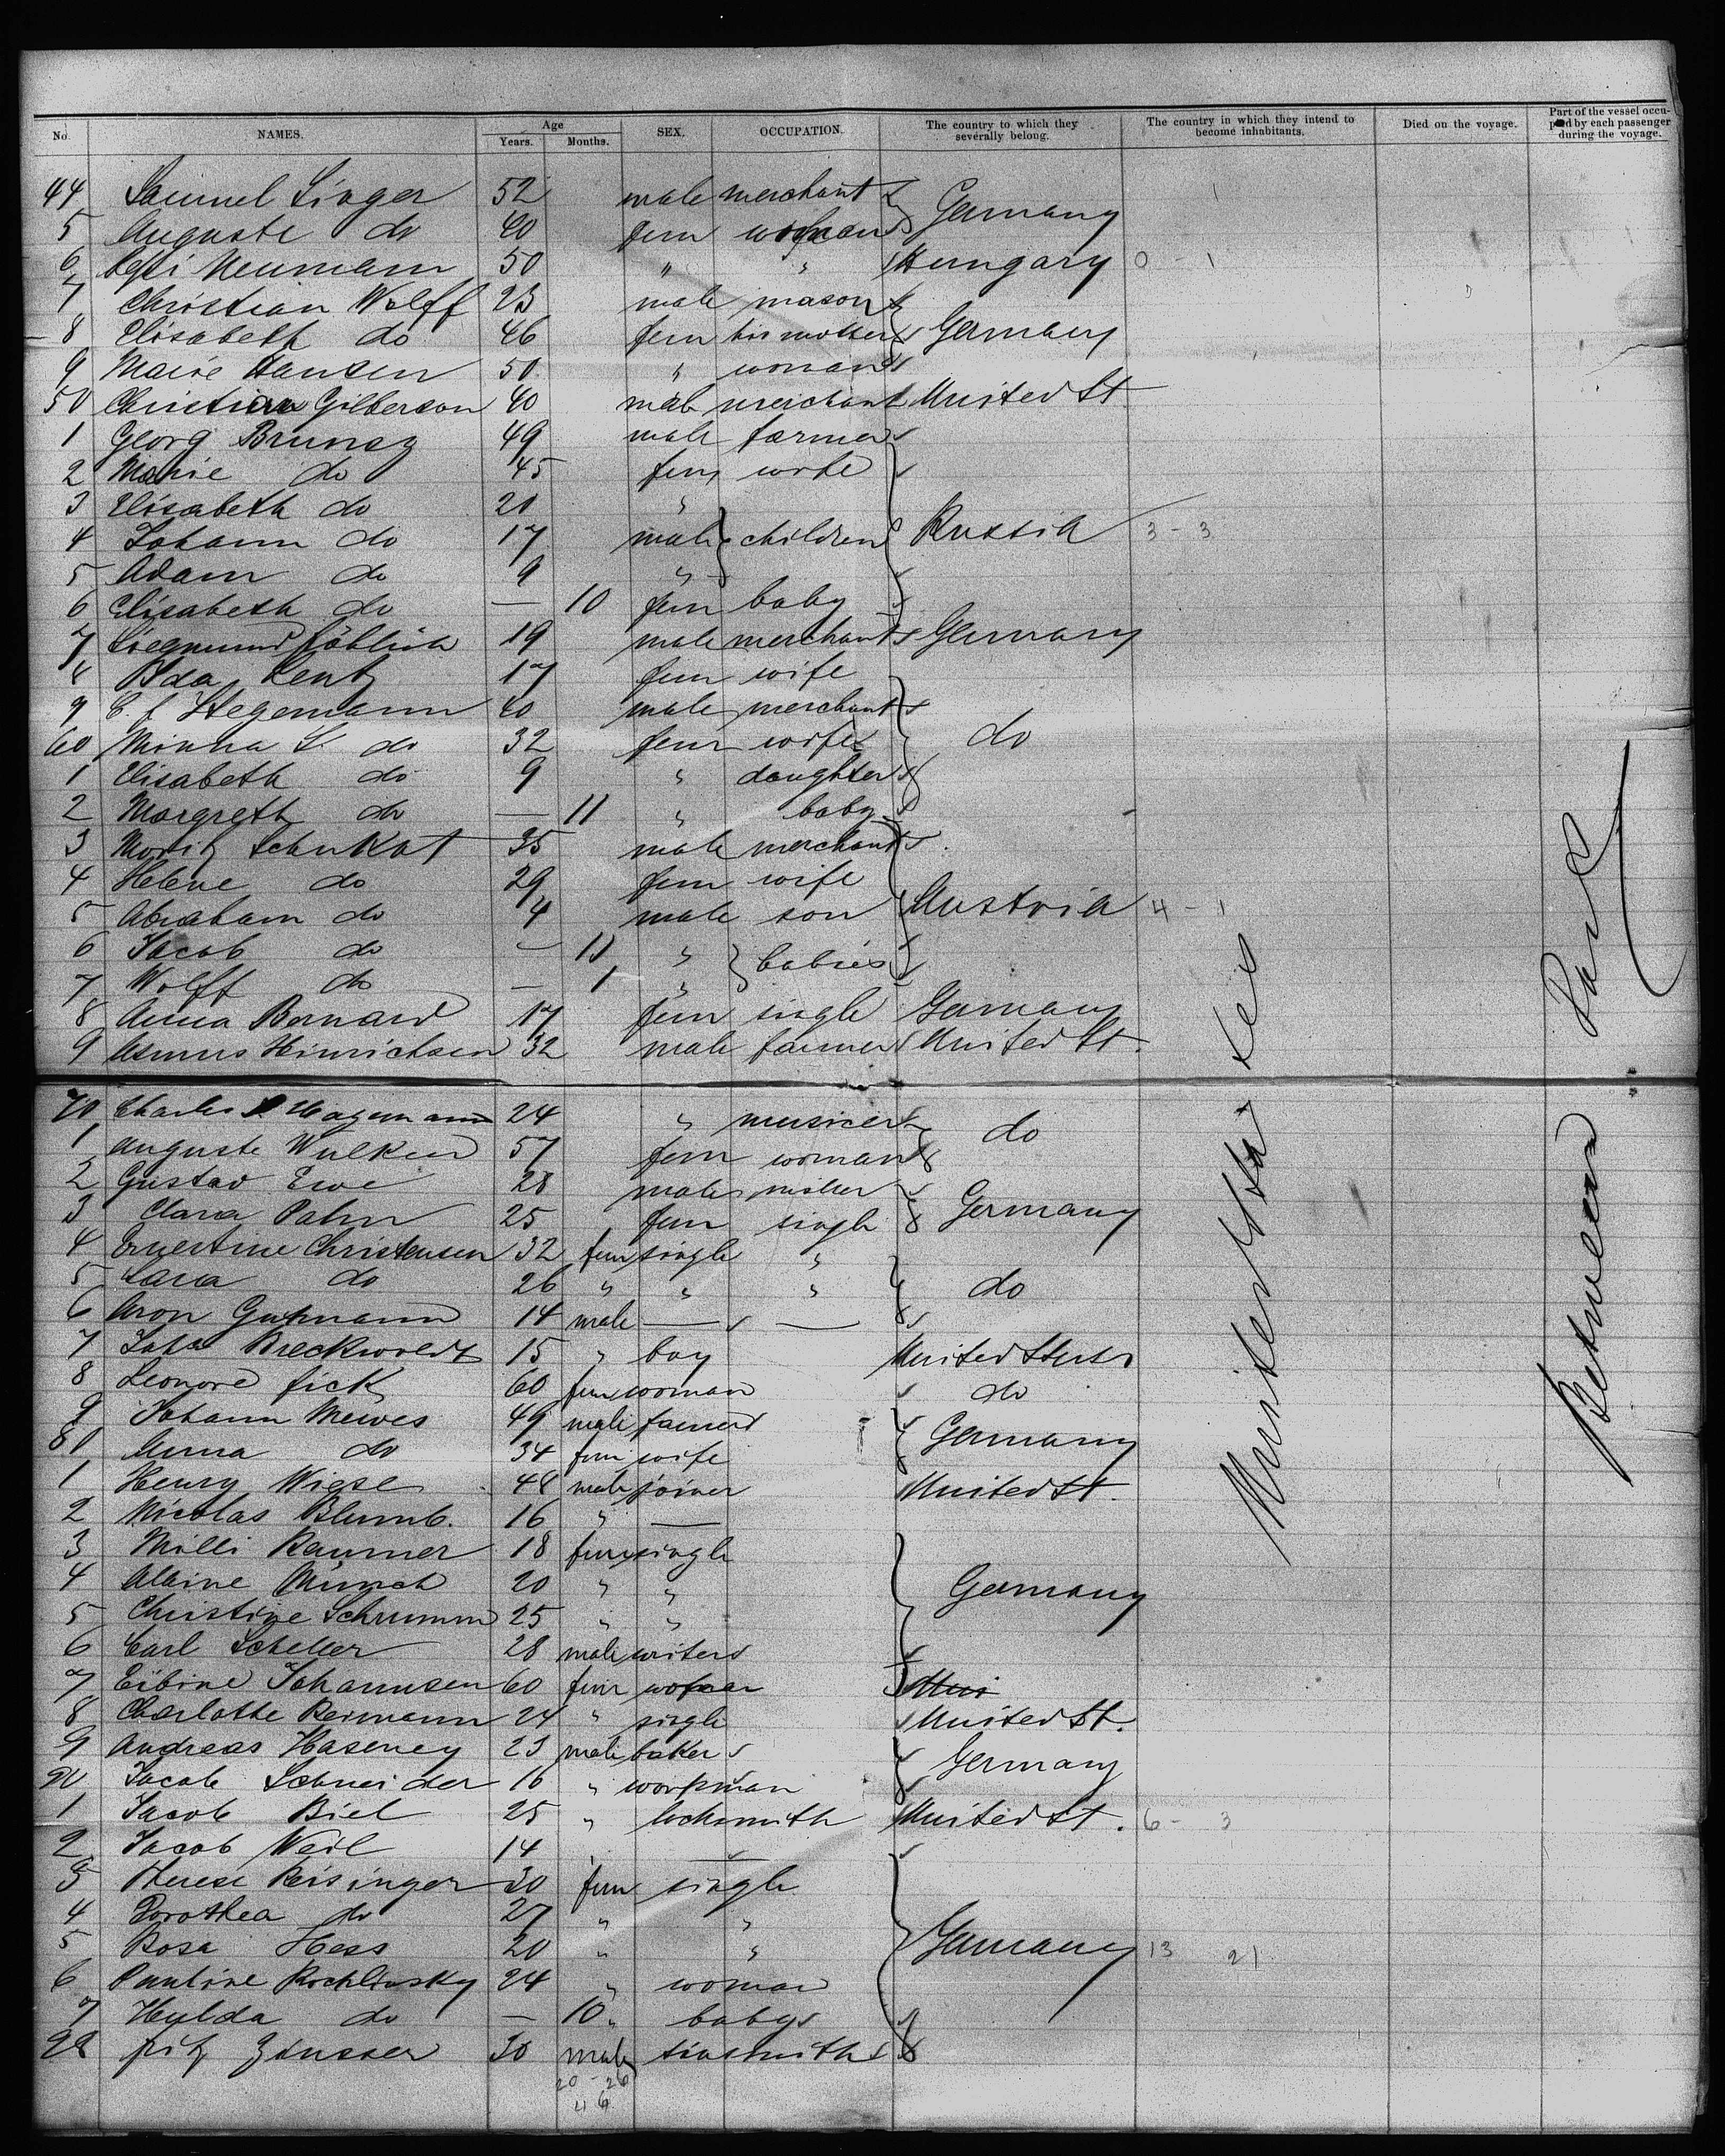 No. NAMES. Age Years. Months. SEX. OCCUPATION. The country to which they severally belong. The country in which they intend to become inhabitants. Died on the voyage. Part of the vessel occupied by each passenger during the voyage.
44 Samuel Singer 52 male merchant Germany
5 Auguste do 40 fem woman
6 Neumann 50 " " Hungary 0 - 1
7 Christian Wolff 23 male mason
8 Elisabeth do 46 fem his mother Germany
9 Marie Hansen 50 " woman
50 Christian Gilberson 40 male merchant United St.
1 Georg 49 male farmer
2 Marie do 45 fem wife
3 Elisabeth do 20 "
4 Johann do 17 male children Russia 3 - 3
5 Adam do 9 "
6 Elisabeth do — 10 fem baby
7 Siegmund 19 male merchant Germany
8 Ida Lentz 17 fem wife
9 C. f. Stegemann 40 male merchant
60 Minna S. do 32 fem wife do
1 Elisabeth do 9 " daughter
2 Margreth do — 11 " baby
3 Moritz Schukat 35 male merchant
4 Helene do 29 fem wife
5 Abraham do 4 male son Austria 4 - 1
6 Jacob do — 11 " babies
7 Wolff do — 1 "
8 Anna Bernard 17 fem single Germany
9 Asmus Hinrichsen 32 male farmer United St.
70 Charles Hagemann 24 " musicer do
1 Auguste Wulken 57 fem woman
2 Gustav Ewe 28 male miller
3 Clara Palm 25 fem single Germany
4 Ernestine Christensen 32 fem single "
5 Lara do 26 " " " do
6 Aron Gutmann 14 male — —
7 John Breckwoldt 15 " boy United States
8 Leonore fick 60 fem woman do
9 Johann Mewes 49 male farmer
80 Anna do 34 fem wife Germany
1 Henry Wiese 48 male joiner United St.
2 Nicolas Blumb. 16 " —
3 Milli Raumer 18 fem single
4 Albine Münch 20 " " Germany
5 Christine Schrumm 25 " "
6 Carl Scheller 28 male writer
7 Johannsen 60 fem woman Uni
8 Charlotte Reimann 24 " single United St.
9 Andreas Haseney 23 male baker
90 Jacob Schneider 16 " workman Germany
1 Jacob Biel 25 " locksmith United St. 6 - 3
2 Jacob Weil 14 " —
3 Therese Reisinger 30 fem single
4 Dorothea do 27 " "
5 Rosa Hess 20 " " Germany 13 21
6 Pauline Rochlinsky 24 " woman
7 Hulda do — 10 " baby
98 fritz 30 male tinsmith
20 - 26
46
United States
Between Deck